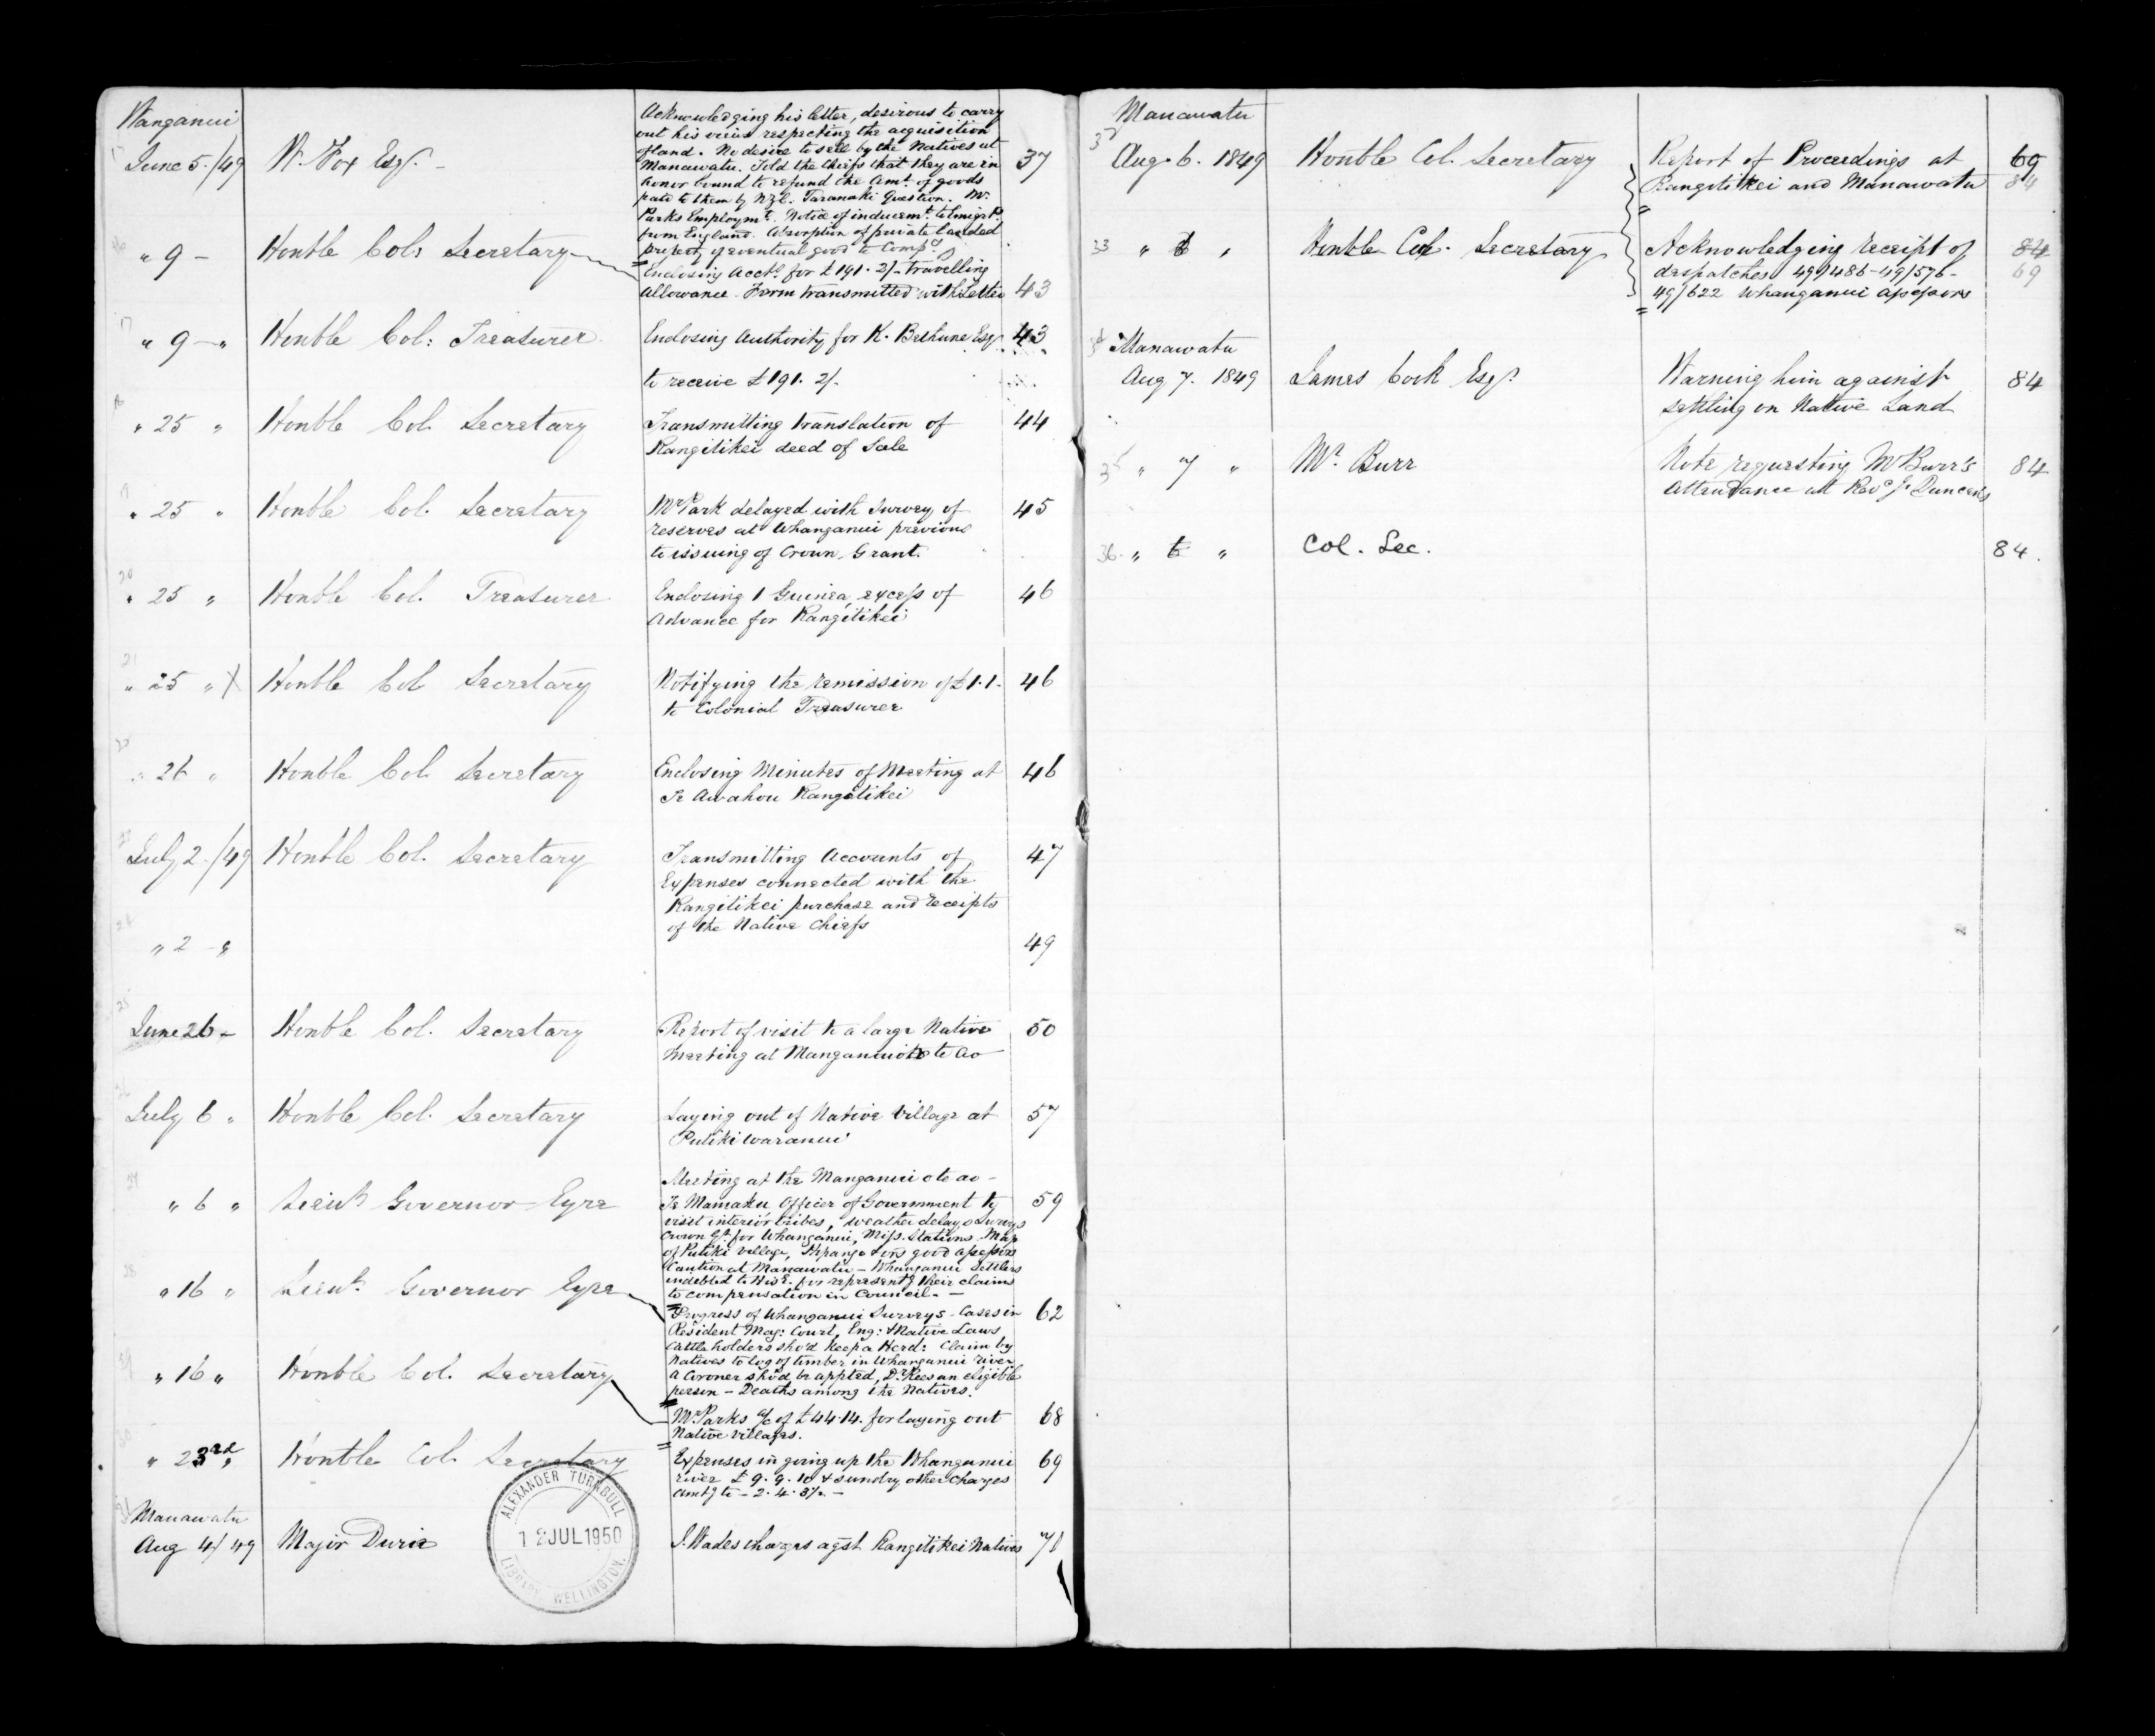 Wanganui
Acknowledging his letter, desirous to carry
out his views respecting the acquisition
of land. No desire to sell by the Natives at
15 June 5./49 W. Fox Esqr. - Manawatu. Told the Chiefs that they are in 37
honor bound to refund the Amt. of goods
paid to them by NZC. Taranaki Question. Mr.
Parks Employmt. Notice of inducemt. to Emigrt.
from England. Absorption of private landed
16 " 9 - Honble Col: Secretary property of eventual good to Compy.
Enclosing Acct. for £191. 2/- Travelling
Allowance. Form transmitted with Letter 43
17 " 9 - " Honble Col: Treasurer Enclosing Authority for K. Bethune Esqr 43
to receive £191. 2/.
18 " 25 " Honble Col. Secretary Transmitting translation of 44
Rangitikei deed of Sale
19 " 25 " Honble Col. Secretary Mr Park delayed with Survey of 45
reserves at Whanganui previous
to issuing of Crown Grant.
20 " 25 " Honble Col. Treasurer Enclosing 1 Guinea, excess of 46
Advance for Rangitikei
21 " 25 " X Honble Col Secretary Notifying the remission of £1.1. 46
to Colonial Treasurer
" 26 " Honble Col. Secretary Enclosing Minutes of Meeting at 46
Te Awahou Rangitikei
July 2./49 Honble Col. Secretary Transmitting Accounts of 47
Expenses connected with the
Rangitikei purchase and receipts
of the Native Chiefs
24 " 2 - " 49
25 June 26 - Honble Col. Secretary Report of visit to a large Native 50
meeting at Manganuiote Ao
July 6 " Honble Col. Secretary Laying out of Native Village at 57
Putiki waranui
Meeting at the Manganui o te ao -
" 6 " Lieut Governor Eyre Te Mamaku Officer of Government to 59
visit interior tribes, weather delays Surveys
Crown Gt. for Whanganui, Miss. Stations. Map
of Putiki Village, good assessors
Caution at Manawatu - Whanganui Settlers
28 " 16 " Lieut. Governor Eyre indebted to His E. for representg their claims
to compensation in Council. -
Progress of Whanganui Surveys - Cases in 62
Resident Mag: Court, Eng: & Native Laws
Cattle holders sho'd keep a Herd: Claim by
Natives to log of timber in Whanganui river
" 16 " Honble Col. Secretary A Coroner sho'd be appted, Dr. Rees an eligible
person - Deaths among the Natives.
Mr Parks a/c of £44.14. for laying out 68
Native Villages.
30 " 23rd " Honble Col. Secretary Expenses in going up the Whanganui 69
river £9.9.10 & sundry other charges
amtg to - 2.4.3½ -
Manawatu
Aug 4/49 Major Durie J. Wades charges agst Rangitikei Natives 71
ALEXANDER TURNBULL
12 JUL 1950
LIBRARY WELLINGTON.
Manawatu
Aug. 6. 1849 Honble Col. Secretary Report of Proceedings at 69
Rangitikei and Manawatu 84
33 " 6 " Honble Col. Secretary Acknowledging receipt of 84
despatches 49/486 - 49/576 - 69
49/622 Whanganui Assessors
Manawatu
Aug 7. 1849 James Cook Esqr. Warning him against 84
settling on Native Land
35 " 7 " Mr. Burr Note requesting Mr Burr's 84
attendance at Revd J. Duncan's
36. " 6 " Col. Sec. 84.